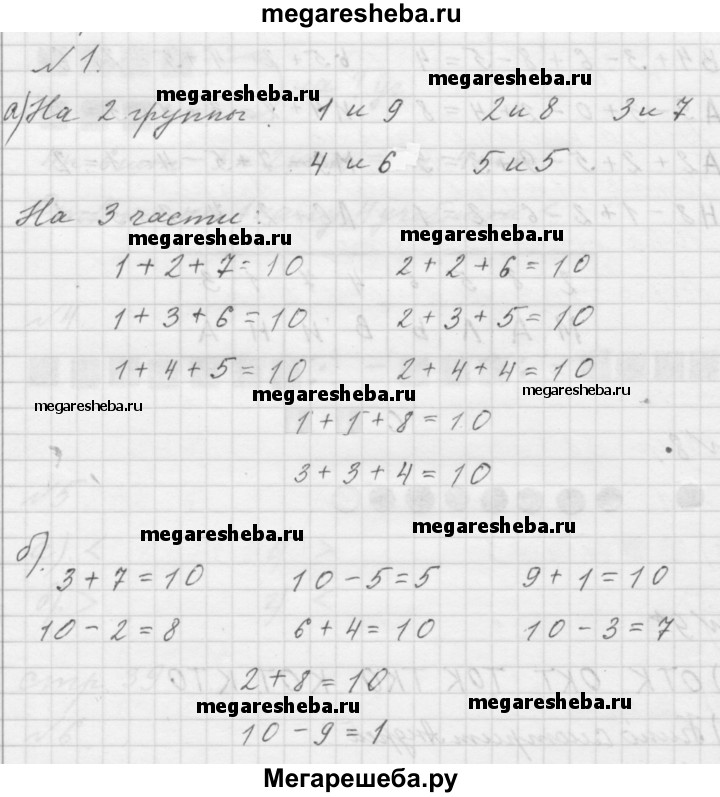 megaresheba.ru
№ 1.
megaresheba.ru megaresheba.ru
а) На 2 группы: 1 и 9 2 и 8 3 и 7
4 и 6 5 и 5
На 3 части:
megaresheba.ru megaresheba.ru
1 + 2 + 7 = 10 2 + 2 + 6 = 10
1 + 3 + 6 = 10 2 + 3 + 5 = 10
1 + 4 + 5 = 10 2 + 4 + 4 = 10
megaresheba.ru megaresheba.ru megaresheba.ru
1 + 1 + 8 = 10
3 + 3 + 4 = 10
megaresheba.ru megaresheba.ru
б).
3 + 7 = 10 10 - 5 = 5 9 + 1 = 10
10 - 2 = 8 6 + 4 = 10 10 - 3 = 7
2 + 8 = 10
megaresheba.ru megaresheba.ru
10 - 9 = 1
Мегарешеба.ру